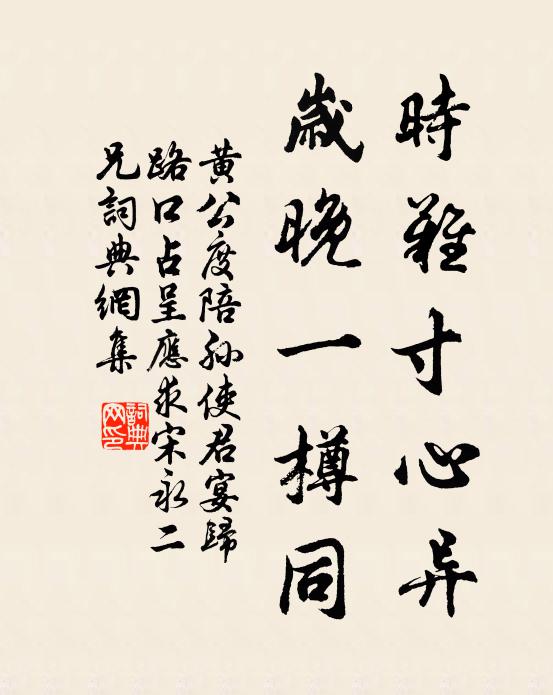 時難寸心异
歲晚一樽同
黄公度陪孙使君宴歸
路口占呈應求宋永二
兄詞典網集
詞典网印